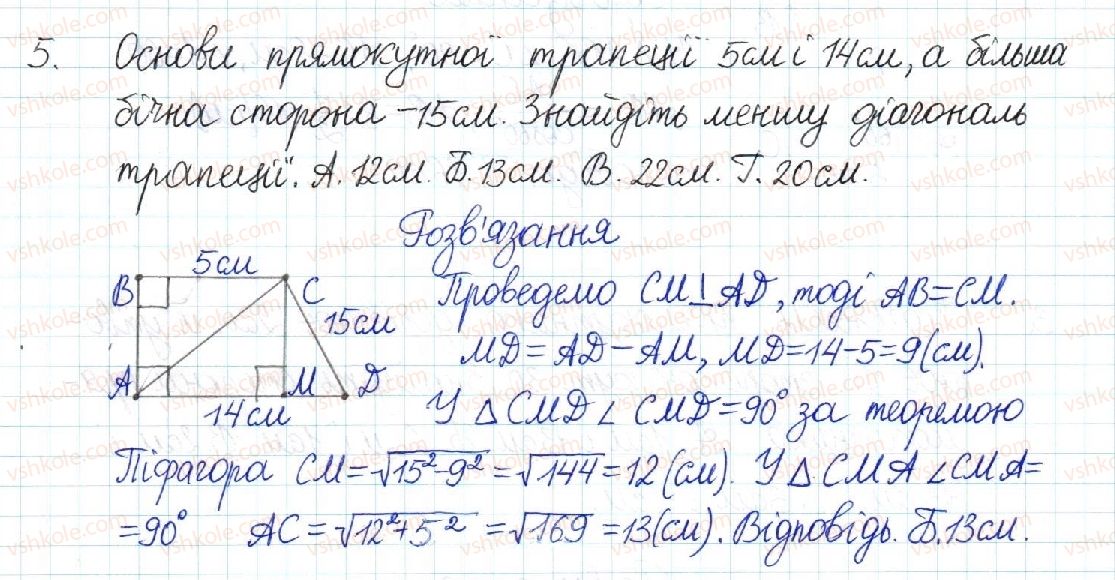 5. Основи прямокутної трапеції 5см і 14см, а більша
бічна сторона – 15см. Знайдіть меншу діагональ
трапеції. А. 12см. Б. 13см. В. 22см. Г. 20см.
Розв'язання
5см
B
C
15см
A
M
D
14см
Проведемо CM⊥AD, тоді AB=CM.
MD=AD–AM, MD=14-5=9(см).
У △CMD ∠CMD=90° за теоремою
Піфагора CM=√15²-9²=√144=12(см). У △CMA ∠CMA=
=90° AC=√12²+5²=√169=13(см). Відповідь. Б. 13см.
vshkole.com